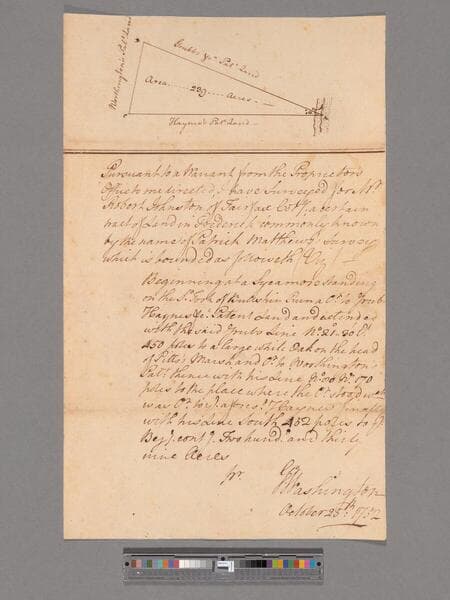 Grubbs &c. Pat.t Land
Worthington's Pat.t Land
Area ...... 239 ... acres
Haynes Pat.t Land
Pursuant to a Warrant from the Proprietors
Office to me directed, I have Surveyed for Mr.
Robert Johnston of Fairfax Coty. a certain
tract of Land in Frederick commonly known
by the name of Patrick Matthews's Survey
which is bounded as followeth
Beginning at a Sycamore standing
on the So. Fork of Bullskin Run a Cr. to Grub
Haynes &c. Patent Land and extend
with the said Grubs Line No. 21
450 poles to a large white Oak on the head
of Pitts's Marsh and Cr. to Worthington
Pat.t thence with his Line 170
poles to the place where the Cr. stood
was Cr. to ye. afores.d Haynes finally
with his Line South 452 poles to ye.
Beg.g cont.g Two hund.d and thirty
nine Acres
pr.
G Washington
October 1752